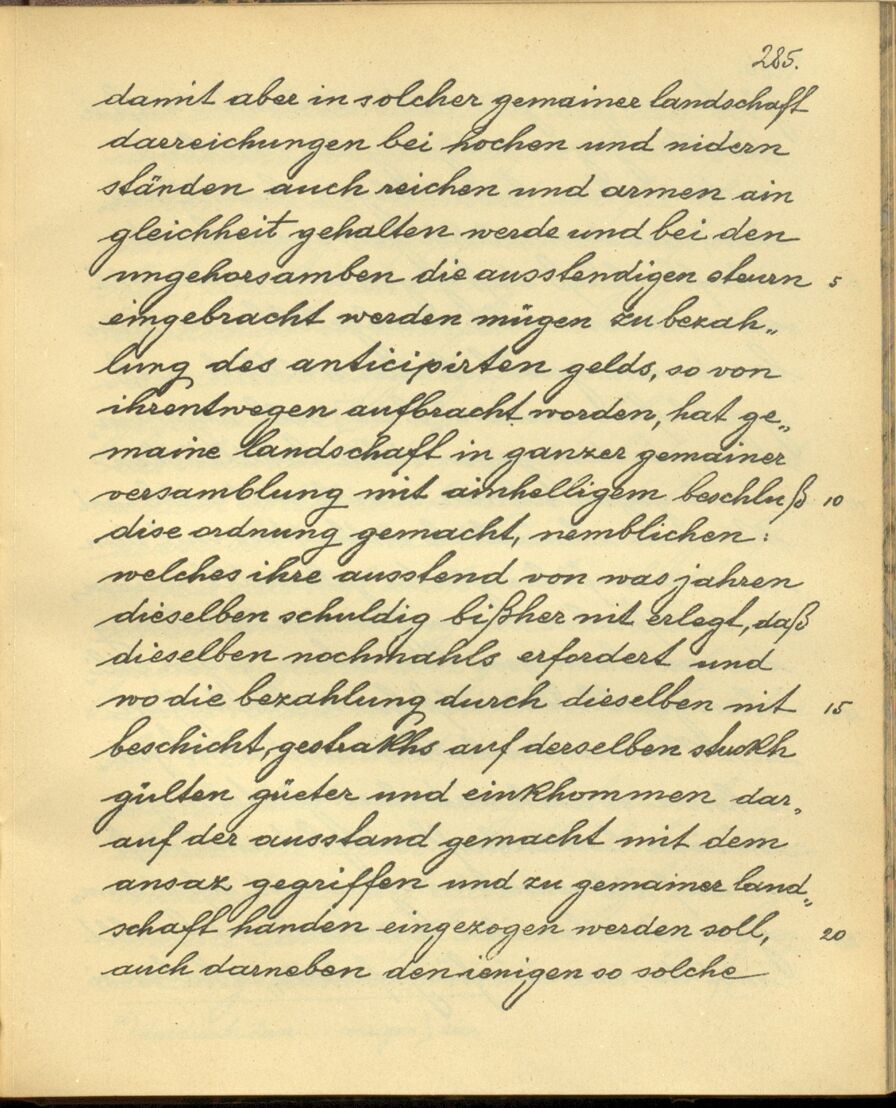 285.
damit aber in solcher gemainer landschaft
darreichungen bei hochen und nidern
ständen auch reichen und armen ain
gleichheit gehalten werde und bei den
ungehorsamben die ausstendigen steurn 5
eingebracht werden mügen zu bezah„
lung des anticipirten gelds, so von
ihrentwegen aufbracht worden, hat ge„
maine landschaft in ganzer gemainer
versamblung mit ainhelligem beschluß 10
dise ordnung gemacht, nemblichen:
welches ihre ausstend von was jahren
dieselben schuldig bißher nit erlegt, daß
dieselben nochmahls erfordert und
wo die bezahlung durch dieselben nit 15
beschicht, gestrakhs auf derselben stuckh
gülten güeter und einkhommen dar„
auf der ausstand gemacht mit dem
ansaz gegriffen und zu gemainer land„
schaft handen eingezogen werden soll, 20
auch darneben den ienigen so solche